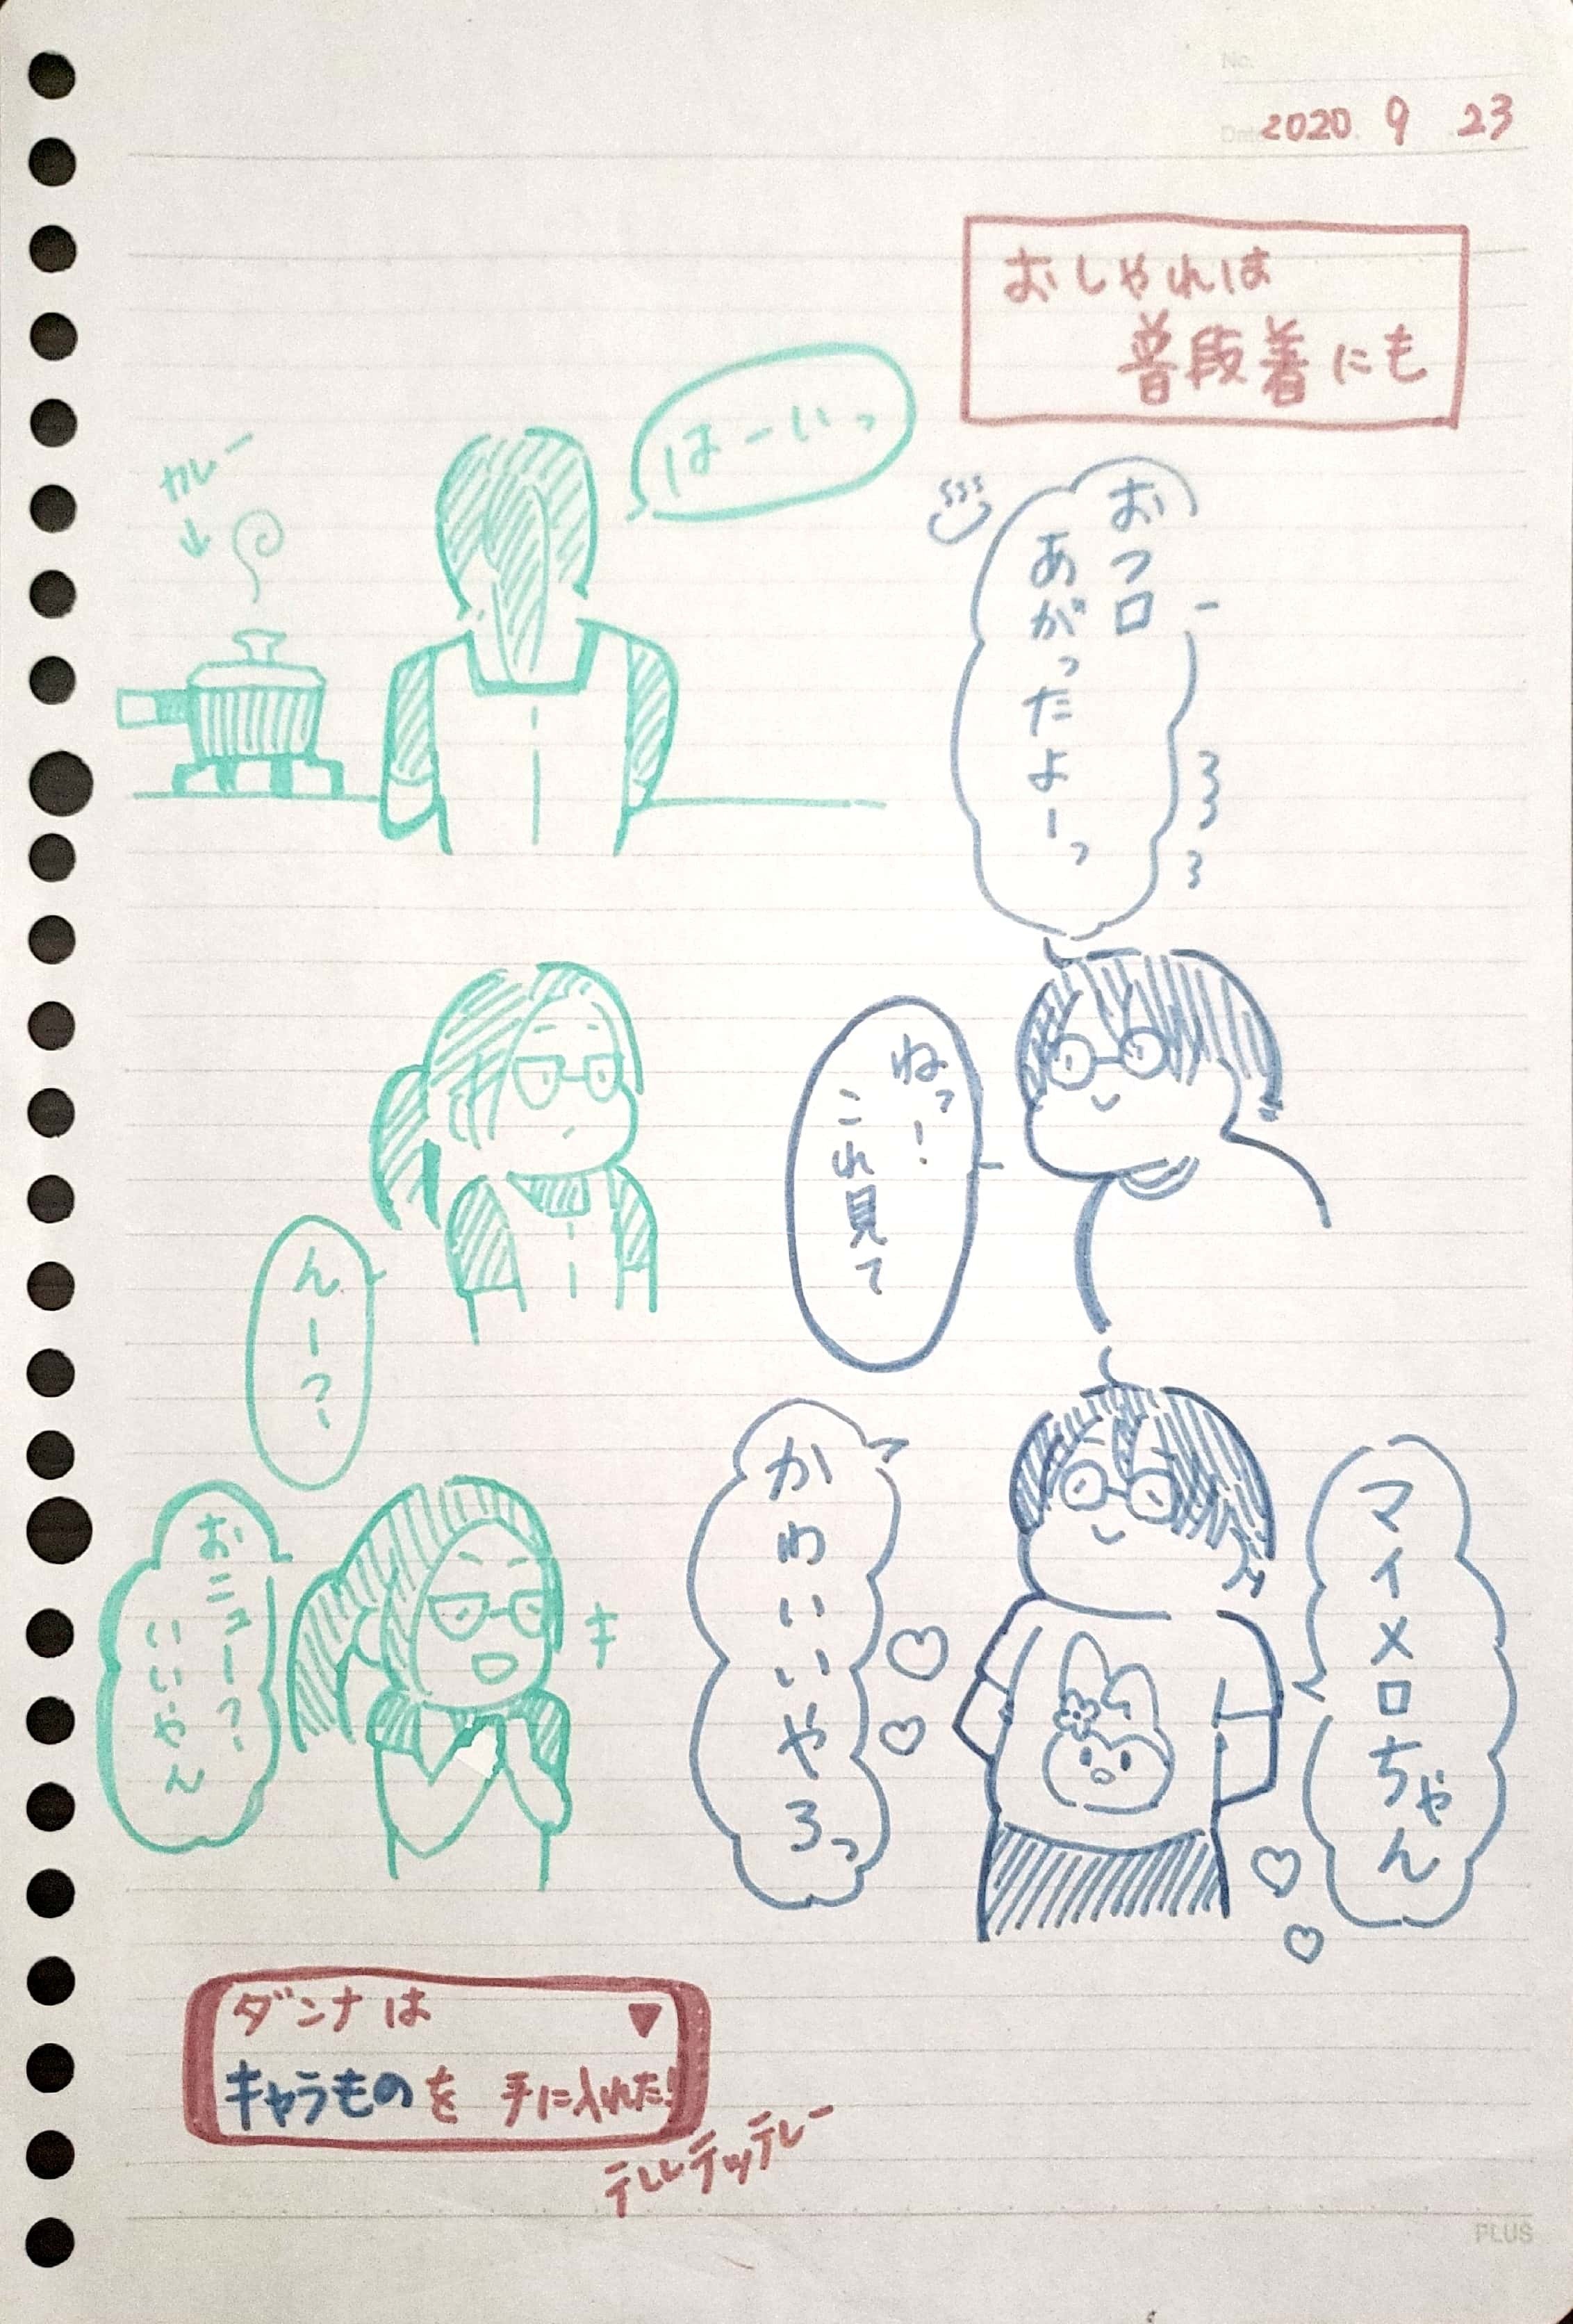 No.
Date 2020. 9 23
おしゃれは
普段着にも
おフロ
あがったよーっ
はーいっ
カレー
ねっ!
これ見て
んー?
マイメロちゃん
かわいいやろっ
おニュー?
いいやん
ダンナは
キャラものを 手に入れた!
テレレテッテレー
PLUS